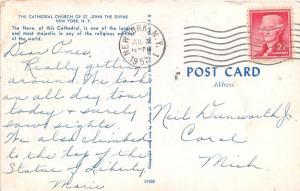 THE CATHEDRAL CHURCH OF ST. JOHN THE DIVINE
NEW YORK, N. Y.
The Nave, of this Cathedral, is one of the largest
and most majestic in any of the religious edifices
of the world.
Dear Ones,
Really getting
around. Too
an all day tour
today & surely
saw sights.
We also climbed
to the top of the
Statue of Liberty
Marie
NEW YORK, N.Y.
JUL
195
POST CARD
Address
2¢
Neil Dunworth Jr
Coral
Mich